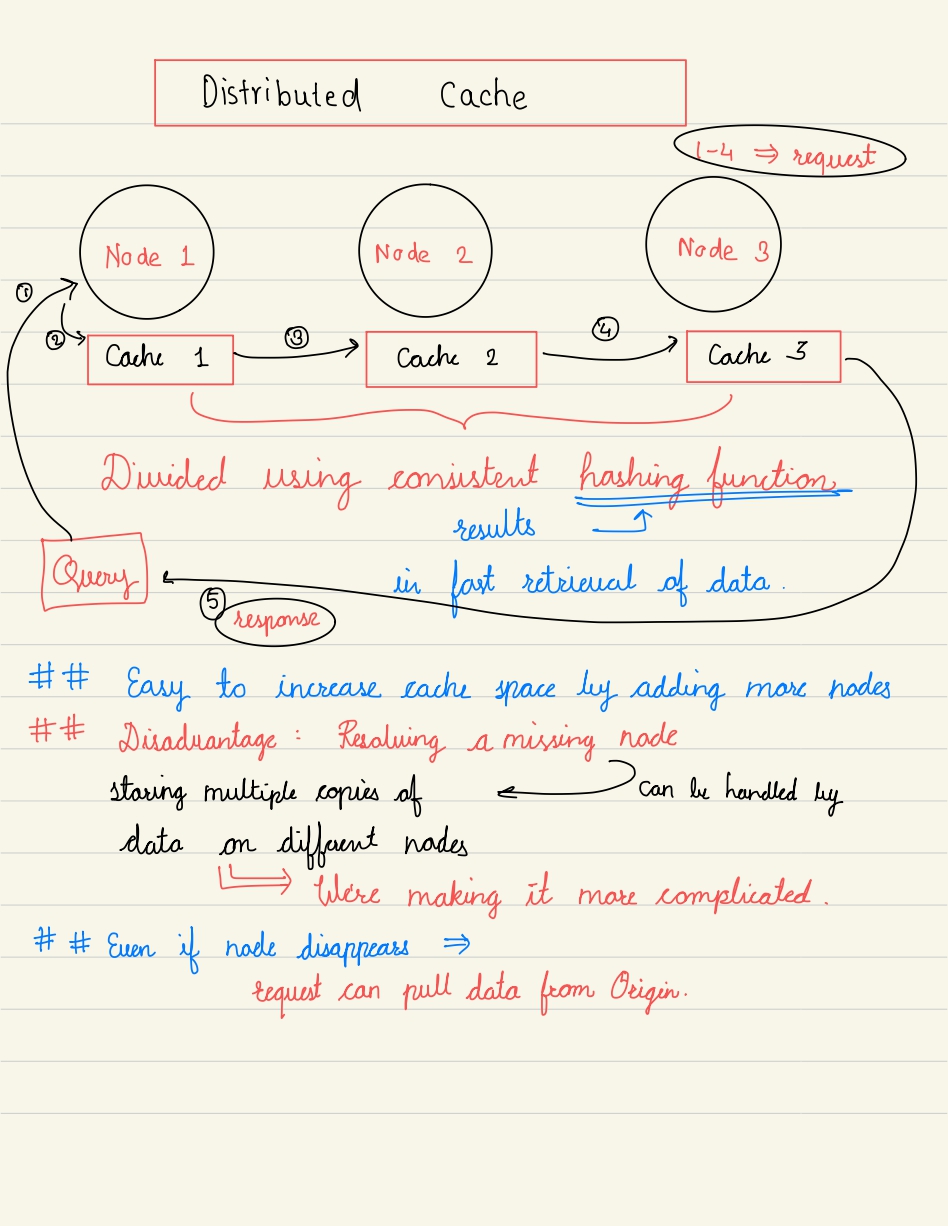 Distributed Cache
1-4 ⇒ request
Node 1 Node 2 Node 3
1
2 3 4
Cache 1 Cache 2 Cache 3
Divided using consistent hashing function
results
Query
in fast retrieval of data.
5 response
## Easy to increase cache space by adding more nodes
## Disadvantage : Resolving a missing node
can be handled by
storing multiple copies of
data on different nodes
We're making it more complicated.
## Even if node disappears ⇒
request can pull data from Origin.